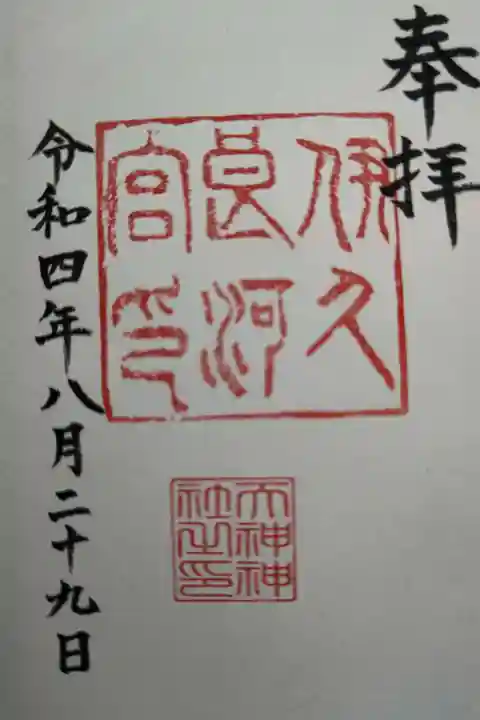 奉拝
伊久
邑河
宮印
大神神
社之印
令和四年八月二十九日